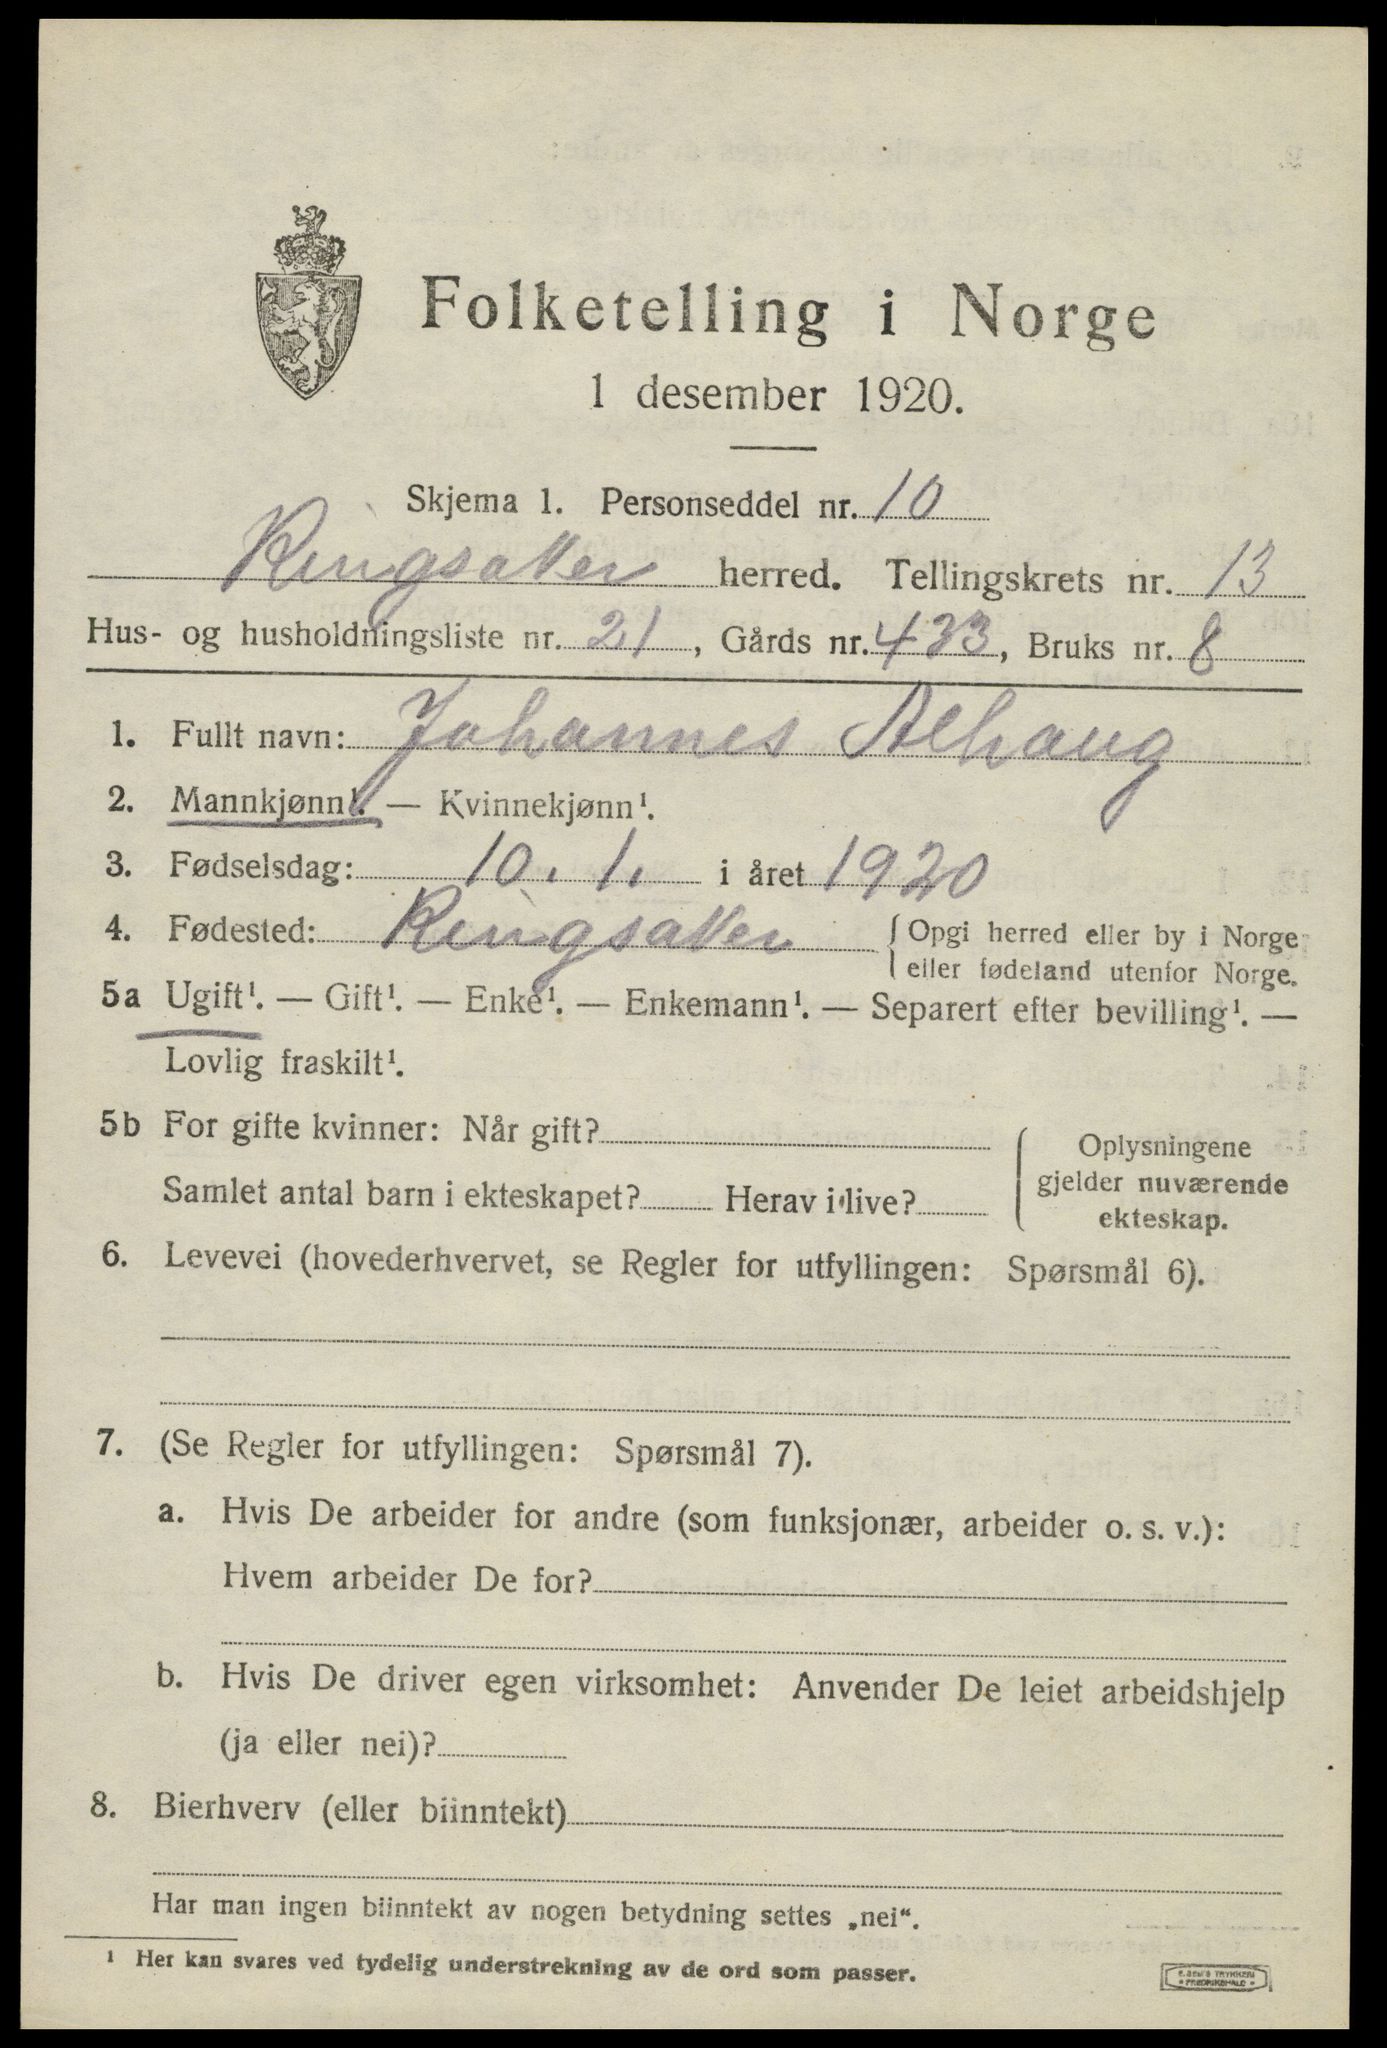 Folketelling i Norge
1 desember 1920.
Skjema 1. Personseddel nr. 10
Ringsaker herred. Tellingskrets nr. 13
Hus- og husholdningsliste nr. 21, Gårds nr. 433, Bruks nr. 8
1. Fullt navn: Johannes Alhaug
2. Mannkjønn¹. — Kvinnekjønn¹.
3. Fødselsdag: 10. 1. i året 1920
4. Fødested: Ringsaker {Opgi herred eller by i Norge
eller fødeland utenfor Norge.
5a Ugift¹. — Gift¹. — Enke¹. — Enkemann¹. — Separert efter bevilling¹. —
Lovlig fraskilt¹.
5b For gifte kvinner: Når gift?
Samlet antal barn i ekteskapet? Herav i live?
Oplysningene
gjelder nuværende
ekteskap.
6. Levevei (hovederhvervet, se Regler for utfyllingen: Spørsmål 6).
7. (Se Regler for utfyllingen: Spørsmål 7).
a. Hvis De arbeider for andre (som funksjonær, arbeider o. s. v.):
Hvem arbeider De for?
b. Hvis De driver egen virksomhet: Anvender De leiet arbeidshjelp
(ja eller nei)?
8. Bierhverv (eller biinntekt)
Har man ingen biinntekt av nogen betydning settes „nei“.
¹ Her kan svares ved tydelig understrekning av de ord som passer.
E. SEM'S TRYKKERI
FREDRIKSHALD